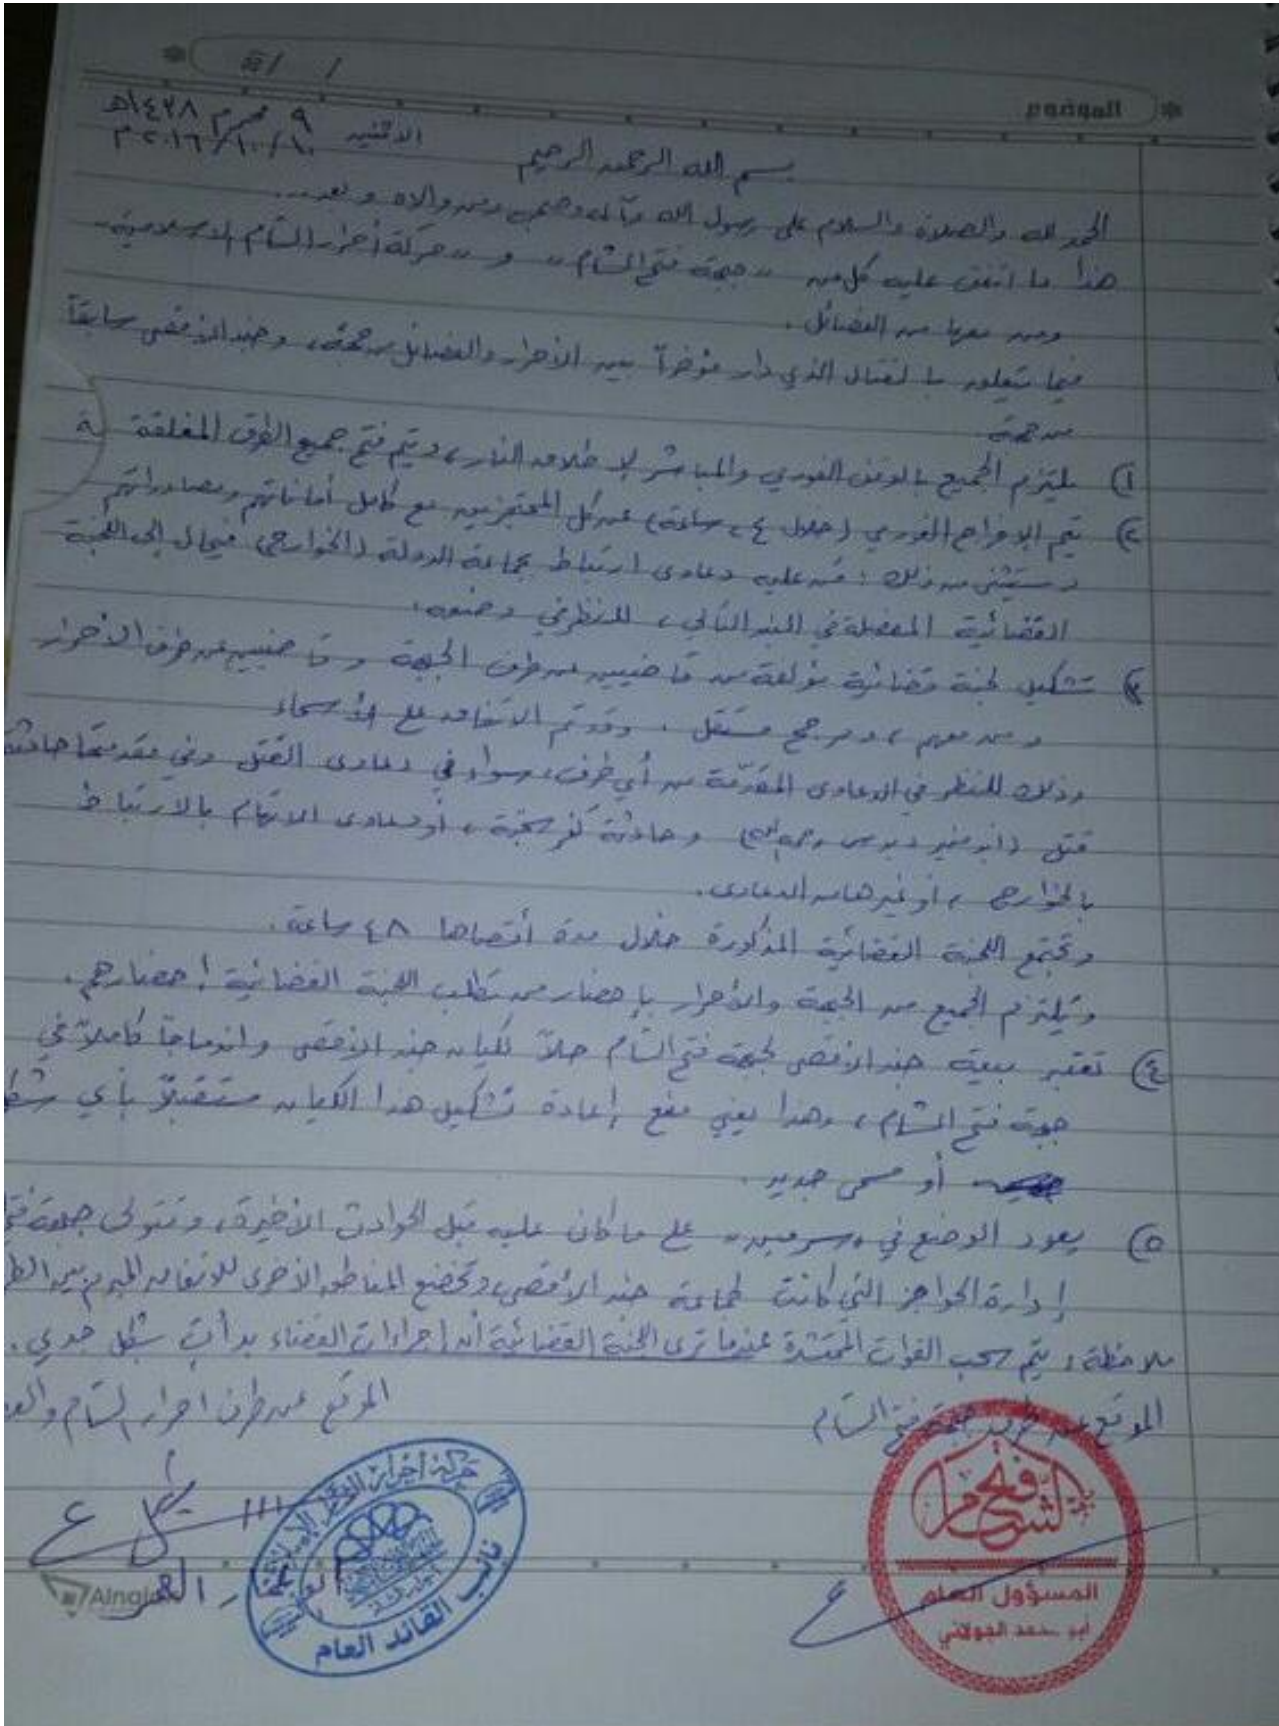 الموضوع
/ /
الاثنين ٩ محرم ١٤٣٨هـ
٢٠١٦/١٠/١٠م
بسم الله الرحمن الرحيم
الحمد لله والصلاة والسلام على رسول الله وآله وصحبه ومن والاه وبعد..
هذا ما اتفق عليه كل من "جبهة فتح الشام" و "حركة أحرار الشام الإسلامية"
ومن معها من الفصائل.
فيما يتعلق بالقتال الذي دار مؤخراً بين الأحرار والفصائل من جهة، وجند الأقصى سابقاً
من جهة
١) يلتزم الجميع بالوقف الفوري والمباشر لإطلاق النار، ويتم فتح جميع الطرق المغلقة
٢) يتم الإفراج الفوري (خلال ٢٤ ساعة) عن كل المحتجزين مع كامل أماناتهم ومصادراتهم
ويستثنى من ذلك: من عليه دعاوى ارتباط بجماعة الدولة (الخوارج) فيحال إلى اللجنة
القضائية المفصلة في البند التالي، للنظر في وضعه.
٣) تشكيل لجنة قضائية مؤلفة من قاضيين من طرف الجبهة وقاضيين من طرف الأحرار
ومن معهم، ومرجح مستقل. وقد تم الاتفاق على الأسماء
وذلك للنظر في الدعاوى المقدمة من أي طرف، سواء في دعاوى القتل وفي مقدمتها حادثة
قتل (أبو منير دبوس رحمه الله) وحادثة كفر سجنة، أو دعاوى الاتهام بالارتباط
بالخوارج، أو غيرها من الدعاوى.
وتجتمع اللجنة القضائية المذكورة خلال مدة أقصاها ٤٨ ساعة.
ويلتزم الجميع من الجبهة والأحرار بإحضار من تطلب اللجنة القضائية إحضارهم.
٤) تعتبر بيعة جند الأقصى لجبهة فتح الشام حلاً لكيان جند الأقصى واندماجاً كاملاً في
جبهة فتح الشام، وهذا يعني منع إعادة تشكيل هذا الكيان مستقبلاً بأي
أو مسمى جديد.
٥) يعود الوضع في "سرمين" على ما كان عليه قبل الحوادث الأخيرة، وتتولى جبهة
إدارة الحواجز التي كانت لجماعة جند الأقصى، وتخضع المناطق الأخرى للاتفاق المبرم بين
ملاحظة: يتم سحب القوات المحتشدة عندما ترى اللجنة القضائية أن إجراءات القضاء بدأت بشكل جدي.
الموقع عن طرف جبهة فتح الشام
الموقع عن طرف أحرار الشام
جبهة فتح الشام
المسؤول العام
أبو محمد الجولاني
حركة أحرار الشام الإسلامية
نائب القائد العام